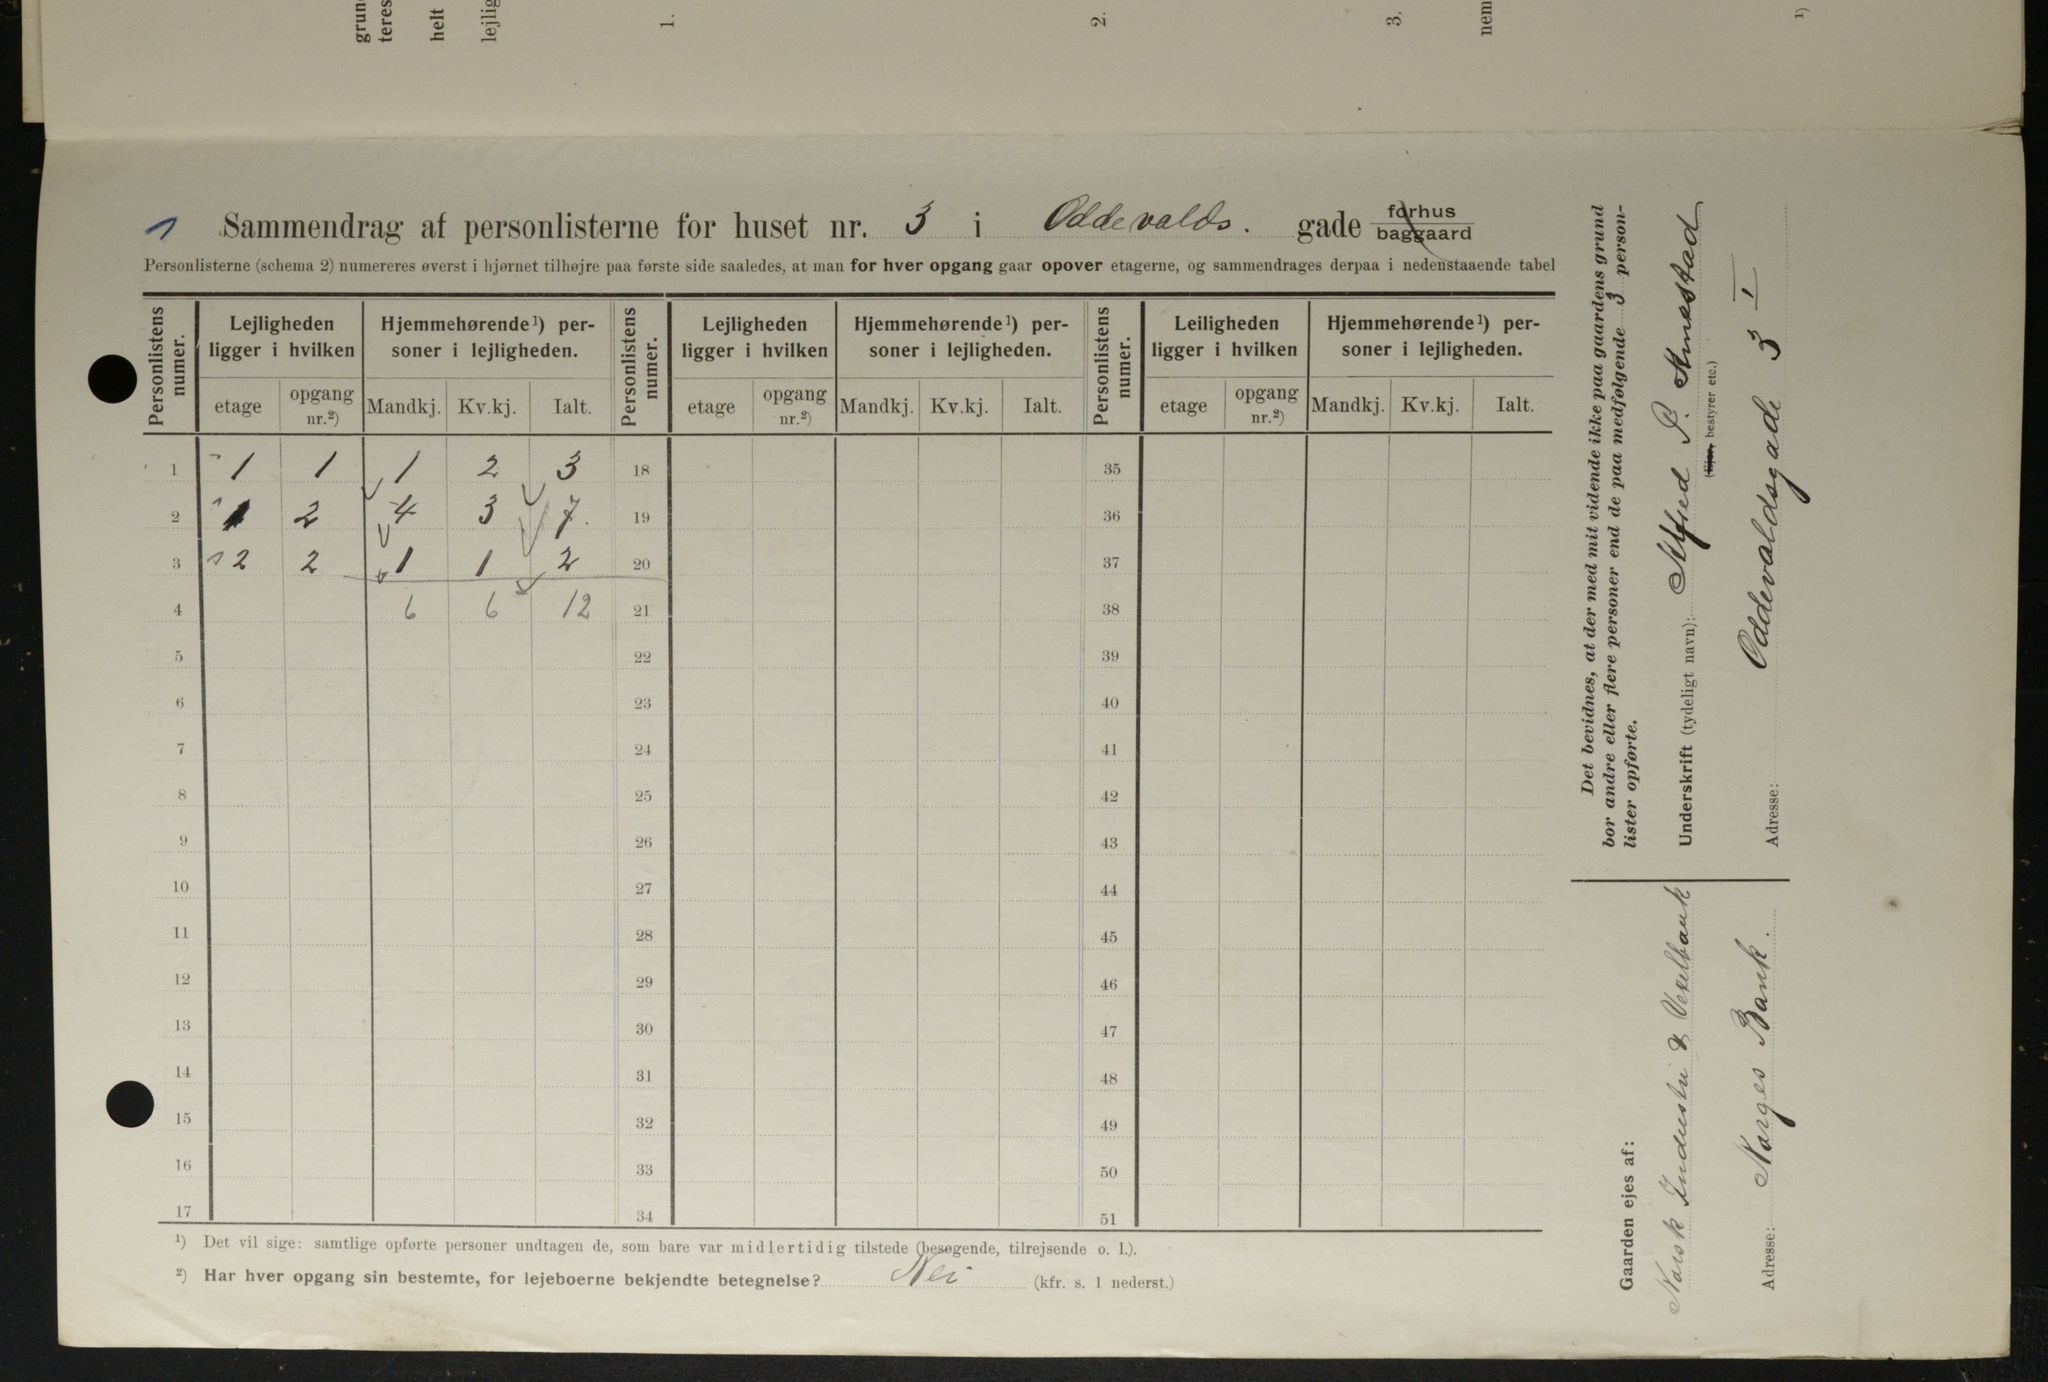 grun
teres
helt
lejlig
1.
2.
3.
nem
1)
1
Sammendrag af personlisterne for huset nr. 3 i Oddevalds. gade forhus baggaard
Personlisterne (schema 2) numereres øverst i hjørnet tilhøjre paa første side saaledes, at man for hver opgang gaar opover etagerne, og sammendrages derpaa i nedenstaaende tabel
Personlistens numer. Lejligheden ligger i hvilken Hjemmehørende¹) personer i lejligheden. Personlistens numer. Lejligheden ligger i hvilken Hjemmehørende¹) personer i lejligheden. Personlistens numer. Leiligheden ligger i hvilken Hjemmehørende¹) personer i lejligheden.
etage opgang nr.²) Mandkj. Kv.kj. Ialt. etage opgang nr.²) Mandkj. Kv.kj. Ialt. etage opgang nr.²) Mandkj. Kv.kj. Ialt.
1 1 1 1 2 3 18 35
2 1 2 4 3 7. 19 36
3 2 2 1 1 2 20 37
4 6 6 12 21 38
5 22 39
6 23 40
7 24 41
8 25 42
9 26 43
10 27 44
11 28 45
12 29 46
13 30 47
14 31 48
15 32 49
16 33 50
17 34 51
¹) Det vil sige: samtlige opførte personer undtagen de, som bare var midlertidig tilstede (besøgende, tilrejsende o. l.).
²) Har hver opgang sin bestemte, for lejeboerne bekjendte betegnelse? Nei (kfr. s. 1 nederst.)
Det bevidnes, at der med mit vidende ikke paa gaardens grund
bor andre eller flere personer end de paa medfølgende 3 person-
lister opførte.
Underskrift (tydeligt navn): Alfred P.
(Ejer, bestyrer etc.)
Adresse: Oddevaldsgade 3 I
Gaarden ejes af:
Norsk Industri & Vexelbank
Adresse: Norges Bank.